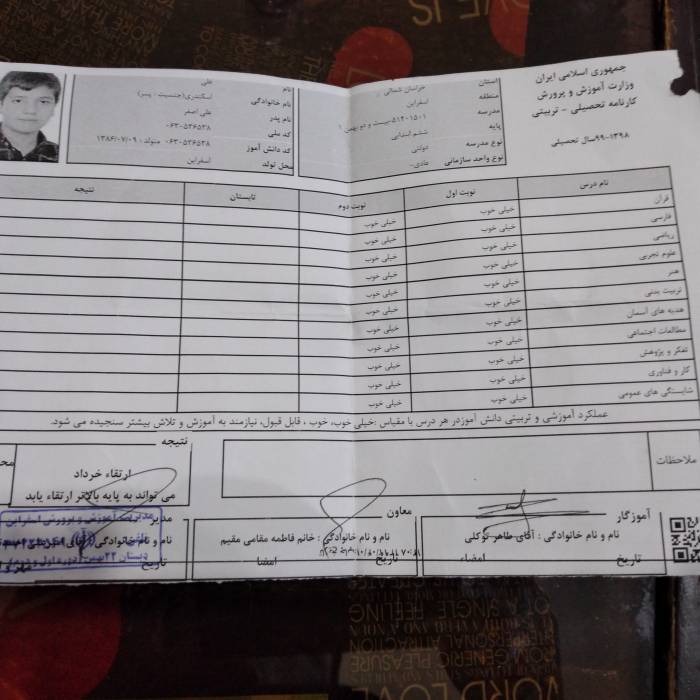 جمهوری اسلامی ایران
وزارت آموزش و پرورش
کارنامه تحصیلی - تربیتی
۹۹-۱۳۹۸سال تحصیلی
استان خراسان شمالی
منطقه اسفراین
مدرسه ۵۱۴۰۱۵۰۱-بیست و دو بهمن ۱
پایه ششم ابتدایی
نوع مدرسه دولتی
نوع واحد سازمانی عادی-
نام علی
نام خانوادگی اسکندری(جنسیت : پسر)
نام پدر علی اصغر
کد ملی ۰۶۳۰۵۳۶۵۳۸
کد دانش آموز ۰۶۳۰۵۳۶۵۳۸ متولد : ۱۳۸۶/۰۷/۰۹
محل تولد اسفراین
نام درس نوبت اول نوبت دوم تابستان نتیجه
قرآن خیلی خوب خیلی خوب
فارسی خیلی خوب خیلی خوب
ریاضی خیلی خوب خیلی خوب
علوم تجربی خیلی خوب خیلی خوب
هنر خیلی خوب خیلی خوب
تربیت بدنی خیلی خوب خیلی خوب
هدیه های آسمان خیلی خوب خیلی خوب
مطالعات اجتماعی خیلی خوب خیلی خوب
تفکر و پژوهش خیلی خوب خیلی خوب
کار و فناوری خیلی خوب خیلی خوب
شایستگی های عمومی خیلی خوب خیلی خوب
عملکرد آموزشی و تربیتی دانش آموزدر هر درس با مقیاس :خیلی خوب، خوب ، قابل قبول، نیازمند به آموزش و تلاش بیشتر سنجیده می شود.
ملاحظات
نتیجه
ارتقاء خرداد
می تواند به پایه بالاتر ارتقاء یابد
آموزگار
نام و نام خانوادگی : آقای طاهر توکلی
تاریخ امضاء
معاون
نام و نام خانوادگی : خانم فاطمه مقامی مقیم
تاریخ امضا
مدیر
نام و نام خانوادگی : آقای
تاریخ
مدیریت آموزش و پرورش اسفراین
دبستان ۲۲بهمن
IS
WORD LOVE